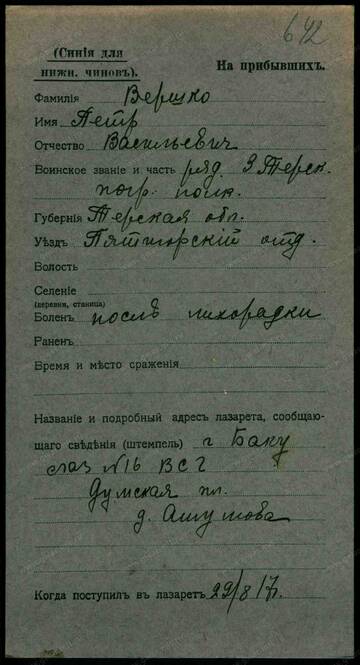 642
(Синія для
нижн. чиновъ).
На прибывшихъ.
Фамилія Вершко
Имя Петр
Отчество Васильевич
Воинское званіе и часть ряд. 3 Терск.
погр. полк.
Губернія Терская обл.
Уѣздъ Пятигорскій отд.
Волость
Селеніе
(деревня, станица)
Боленъ послѣ лихорадки
Раненъ
Время и мѣсто сраженія
Названіе и подробный адресъ лазарета, сообщаю-
щаго свѣдѣнія (штемпель) г Баку
лаз №16 ВСГ
Думская пл.
д. Ашумова
Когда поступил въ лазаретъ 29/8 17г.